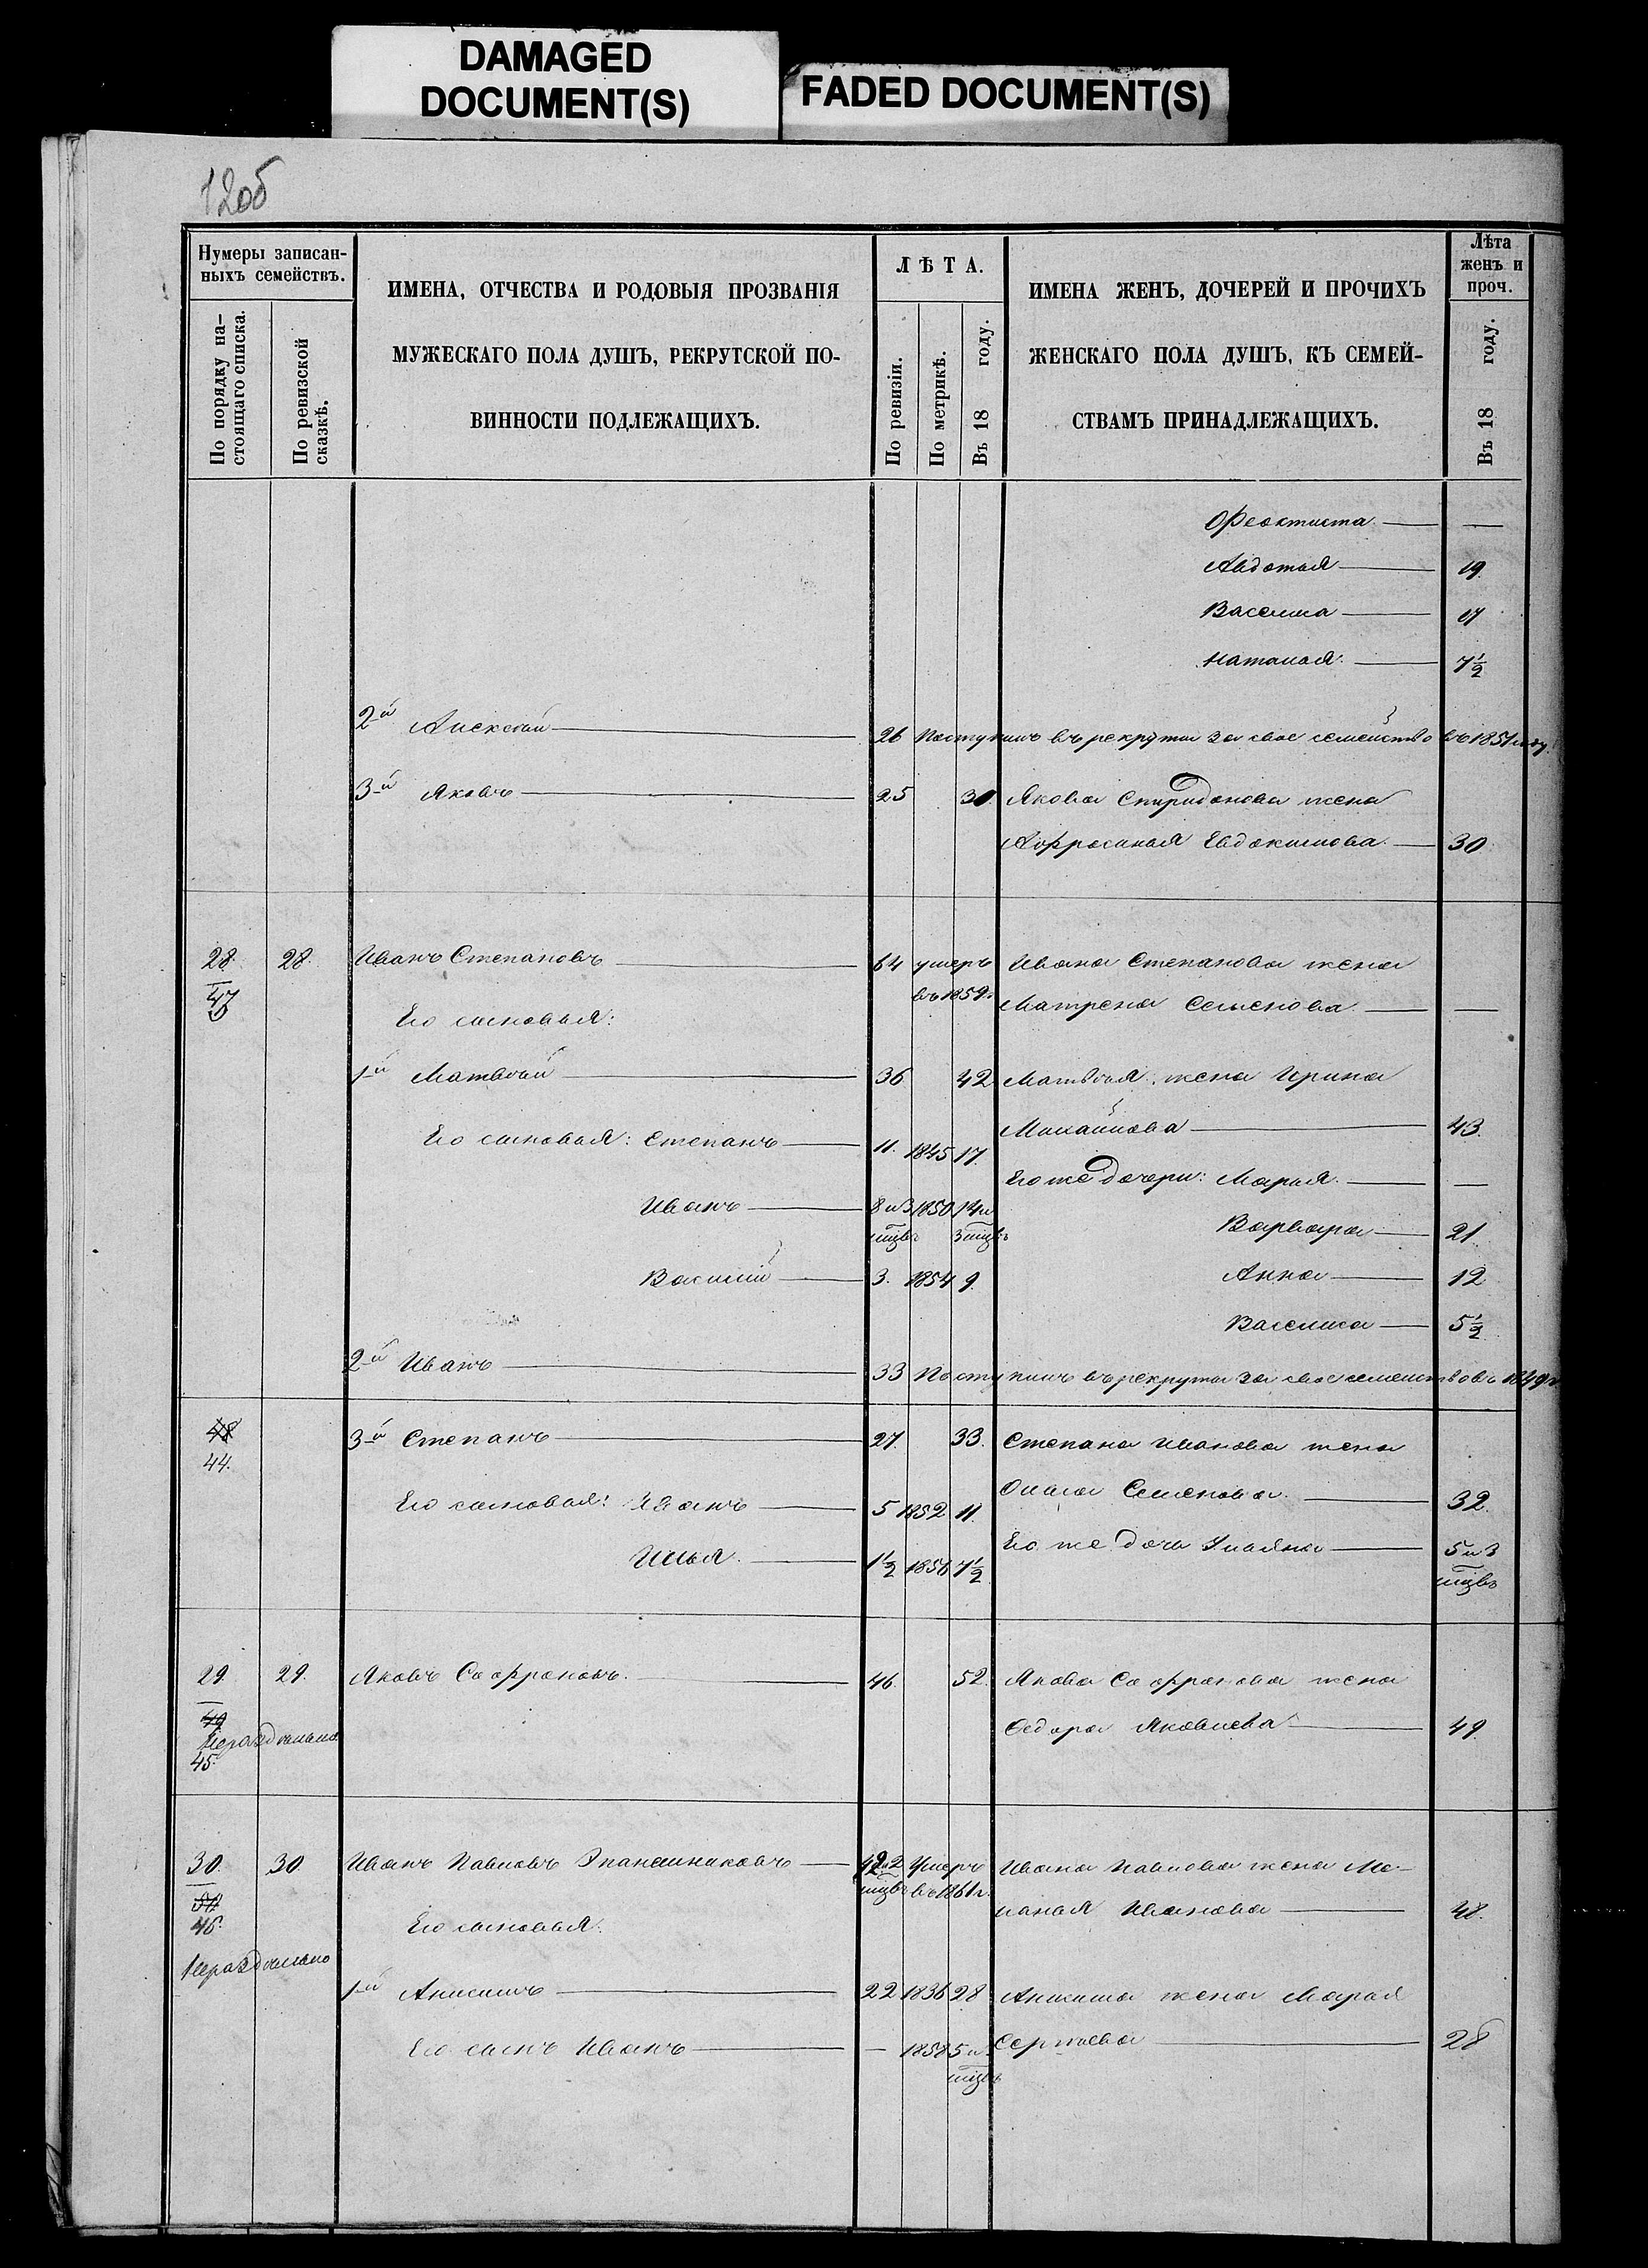 DAMAGED
DOCUMENT(S)
FADED DOCUMENT(S)
12об
Нумеры записан-
ныхъ семействъ.
По порядку на-
стоящаго списка.
По ревизской
сказкѣ.
ИМЕНА, ОТЧЕСТВА И РОДОВЫЯ ПРОЗВАНІЯ
МУЖЕСКАГО ПОЛА ДУШЪ, РЕКРУТСКОЙ ПО-
ВИННОСТИ ПОДЛЕЖАЩИХЪ.
ЛѢТА.
По ревизіи.
По метрикѣ.
Въ 18 году.
ИМЕНА ЖЕНЪ, ДОЧЕРЕЙ И ПРОЧИХЪ
ЖЕНСКАГО ПОЛА ДУШЪ, КЪ СЕМЕЙ-
СТВАМЪ ПРИНАДЛЕЖАЩИХЪ.
Лѣта
женъ и
проч.
Въ 18 году.
Феоктиста — —
Авдотья — 19
Василиса — 17
Наталья — 7½
2й Алексѣй — 26 Поступилъ въ рекруты за свое семейство въ 1851 году.
3й Яковъ — 25 30. Якова Спиридонова жена
Афросинья Евдокимова — 30
28. 28. Иванъ Степановъ — 64 умеръ Ивана Степанова жена
47 въ 1859г. Матрена Семенова — —
Его сыновья:
1й Матвѣй — 36 42 Матвѣя жена Ирина
Михайлова — 43.
Его сыновья: Степанъ — 11. 1845 17.
Его же дочери: Марья — —
Иванъ — 8 и 3 1850 14 и
мцзвъ 3 мцзвъ
Варвара — 21
Василій — 3. 1854 9. Анна — 12
Василиса — 5½
2й Иванъ — 33 Поступилъ въ рекруты за свое семейство въ 1849г
48
44.
3й Степанъ — 27. 33. Степана Иванова жена
Ольга Семенова — 32.
Его сыновья: Иванъ — 5 1852 11.
Его же дочь Ульяна — 5 и 3
мцзвъ
Илья — 1½ 1856 7½
29. 29. Яковъ Софроновъ. — 46. 52. Якова Софронова жена
49 Федора Яковлева — 49.
Нераздѣльно
45.
30. 30 Иванъ Павловъ Епанешниковъ — 49 и 2 Умеръ Ивана Павлова жена Ме-
мцзвъ въ 1861г.
ланья Иванова — 48.
50
46.
Его сыновья:
Нераздѣльно
1й Анисимъ — 22 1836 28 Анисима жена Марья
Сергѣева — 28
Его сынъ Иванъ — — 1858 5 и
мцзвъ